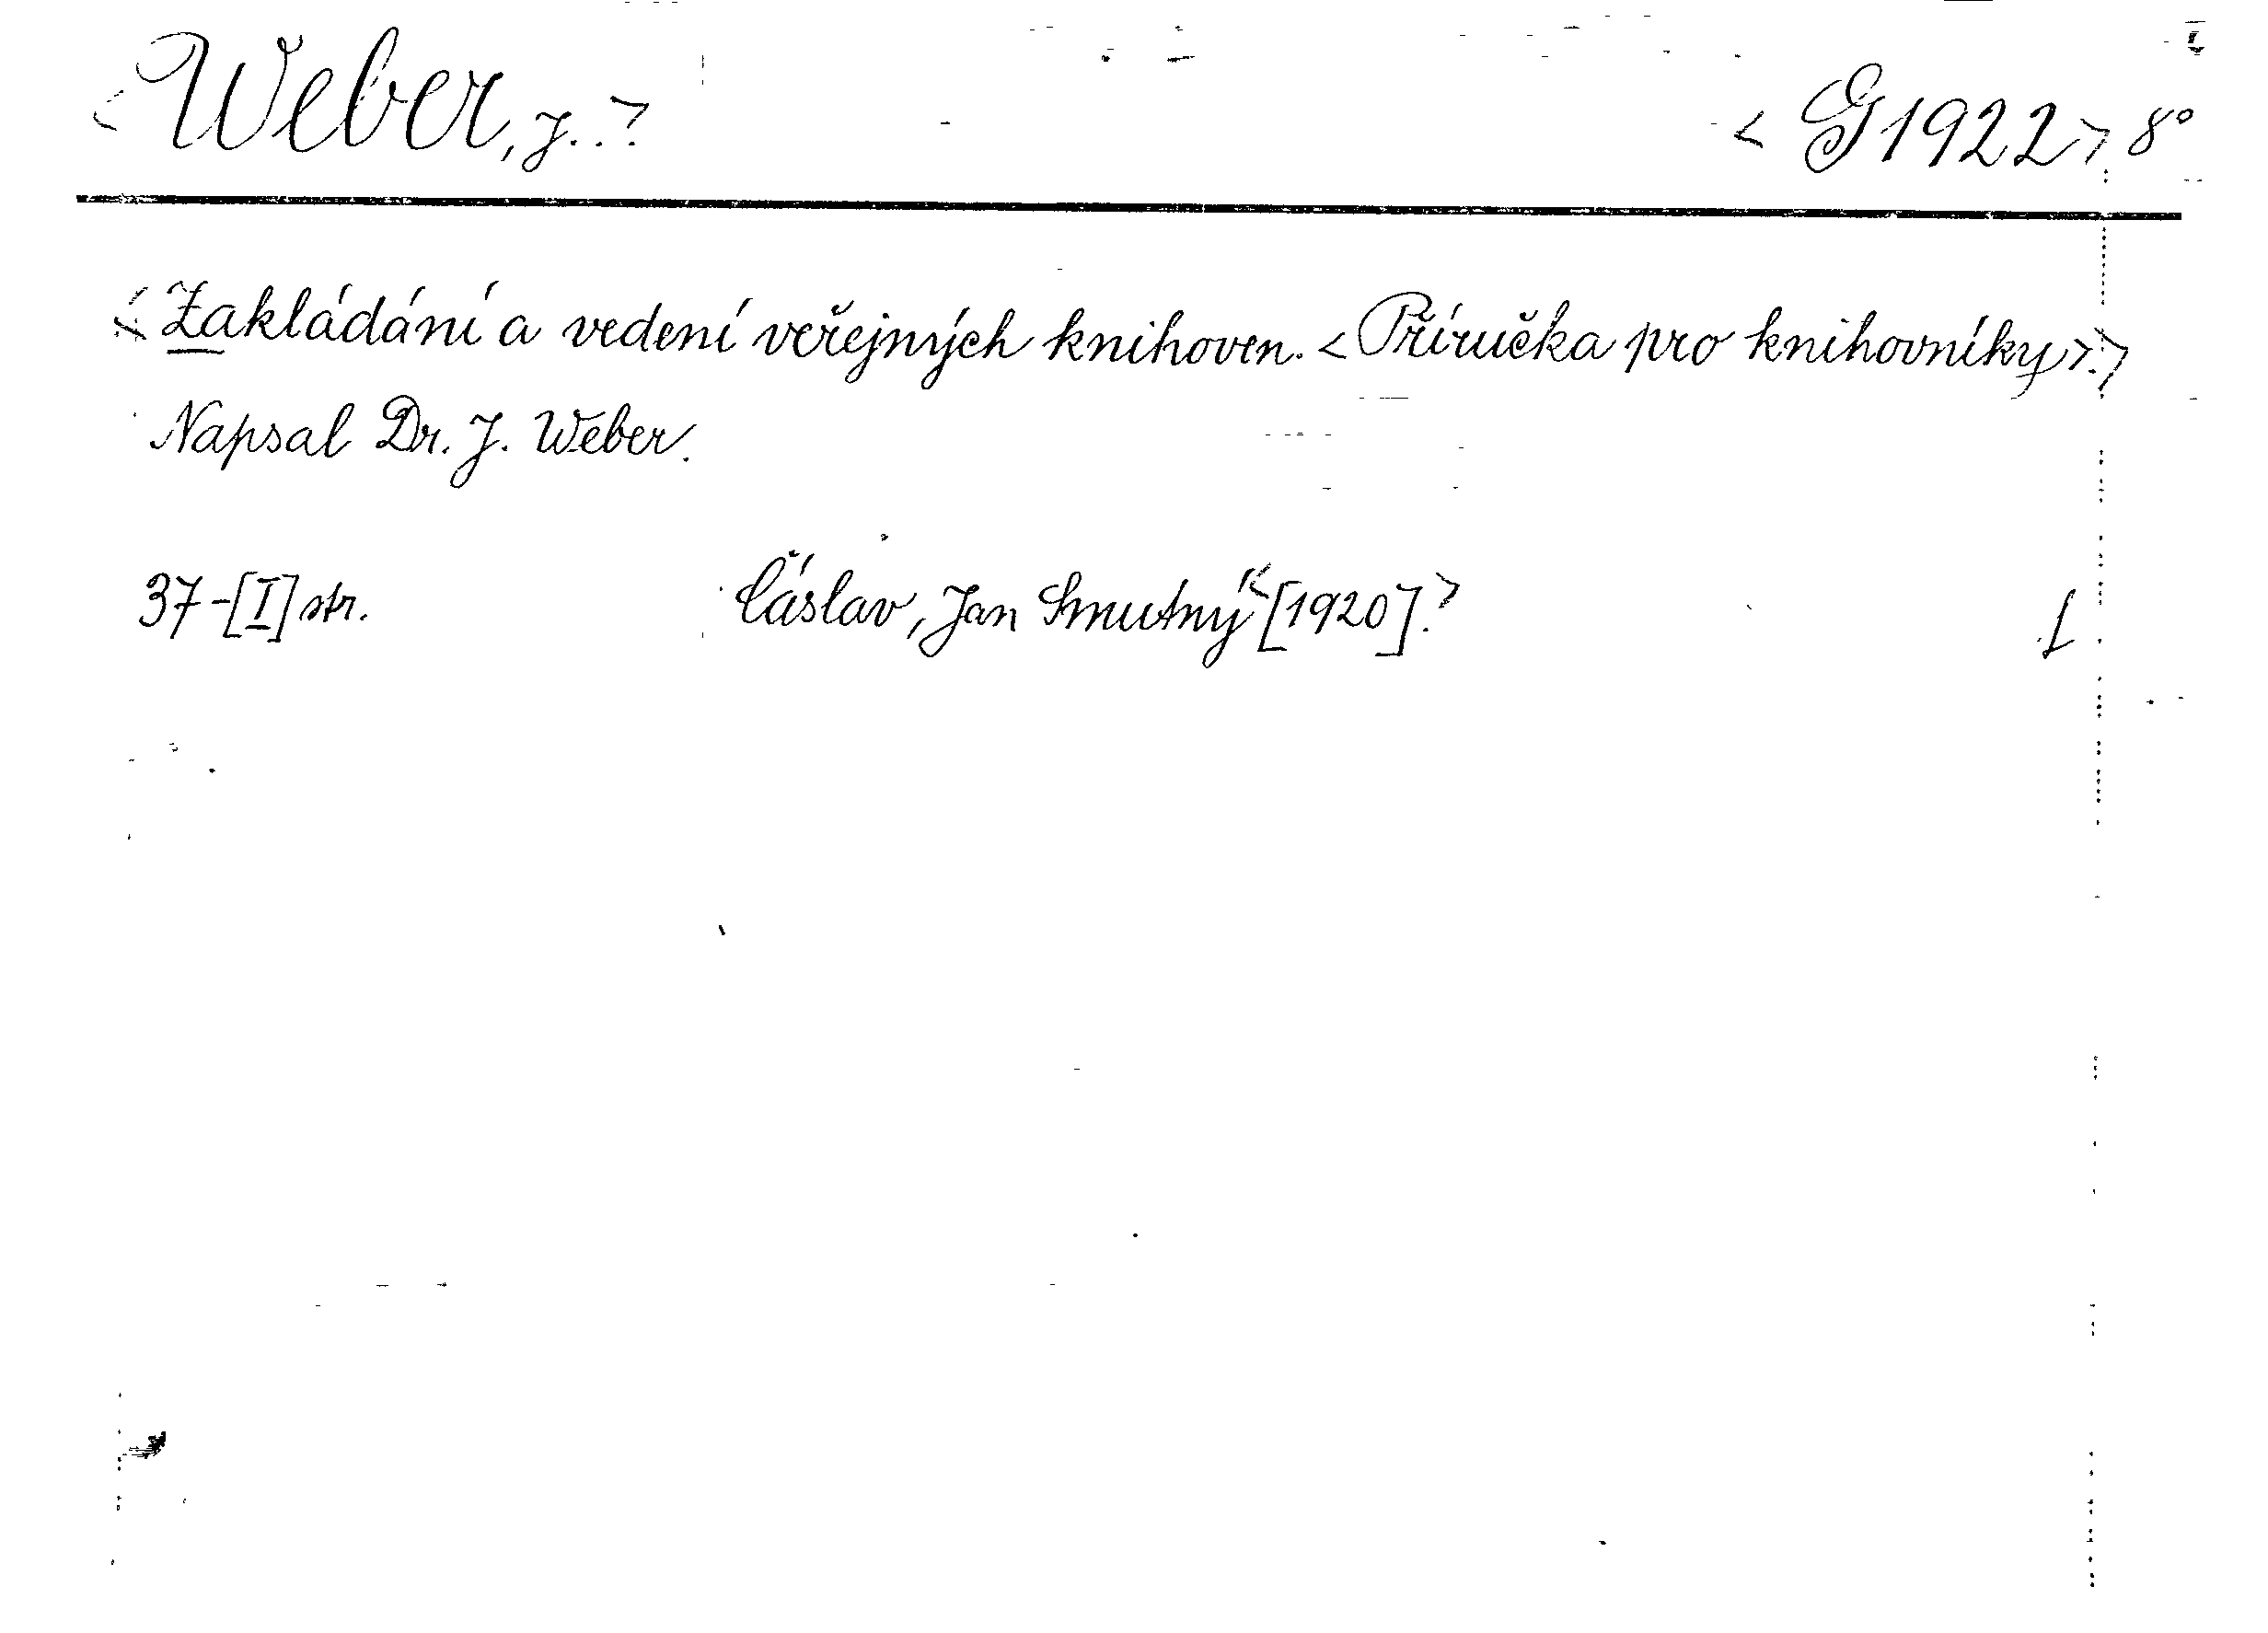 <Weber, J..> <G 1922> 8°
<Zakládání a vedení veřejných knihoven. <Příručka pro knihovníky>.>
Napsal Dr. J. Weber.
37-[I] str. Čáslav, Jan Smutný <[1920].>